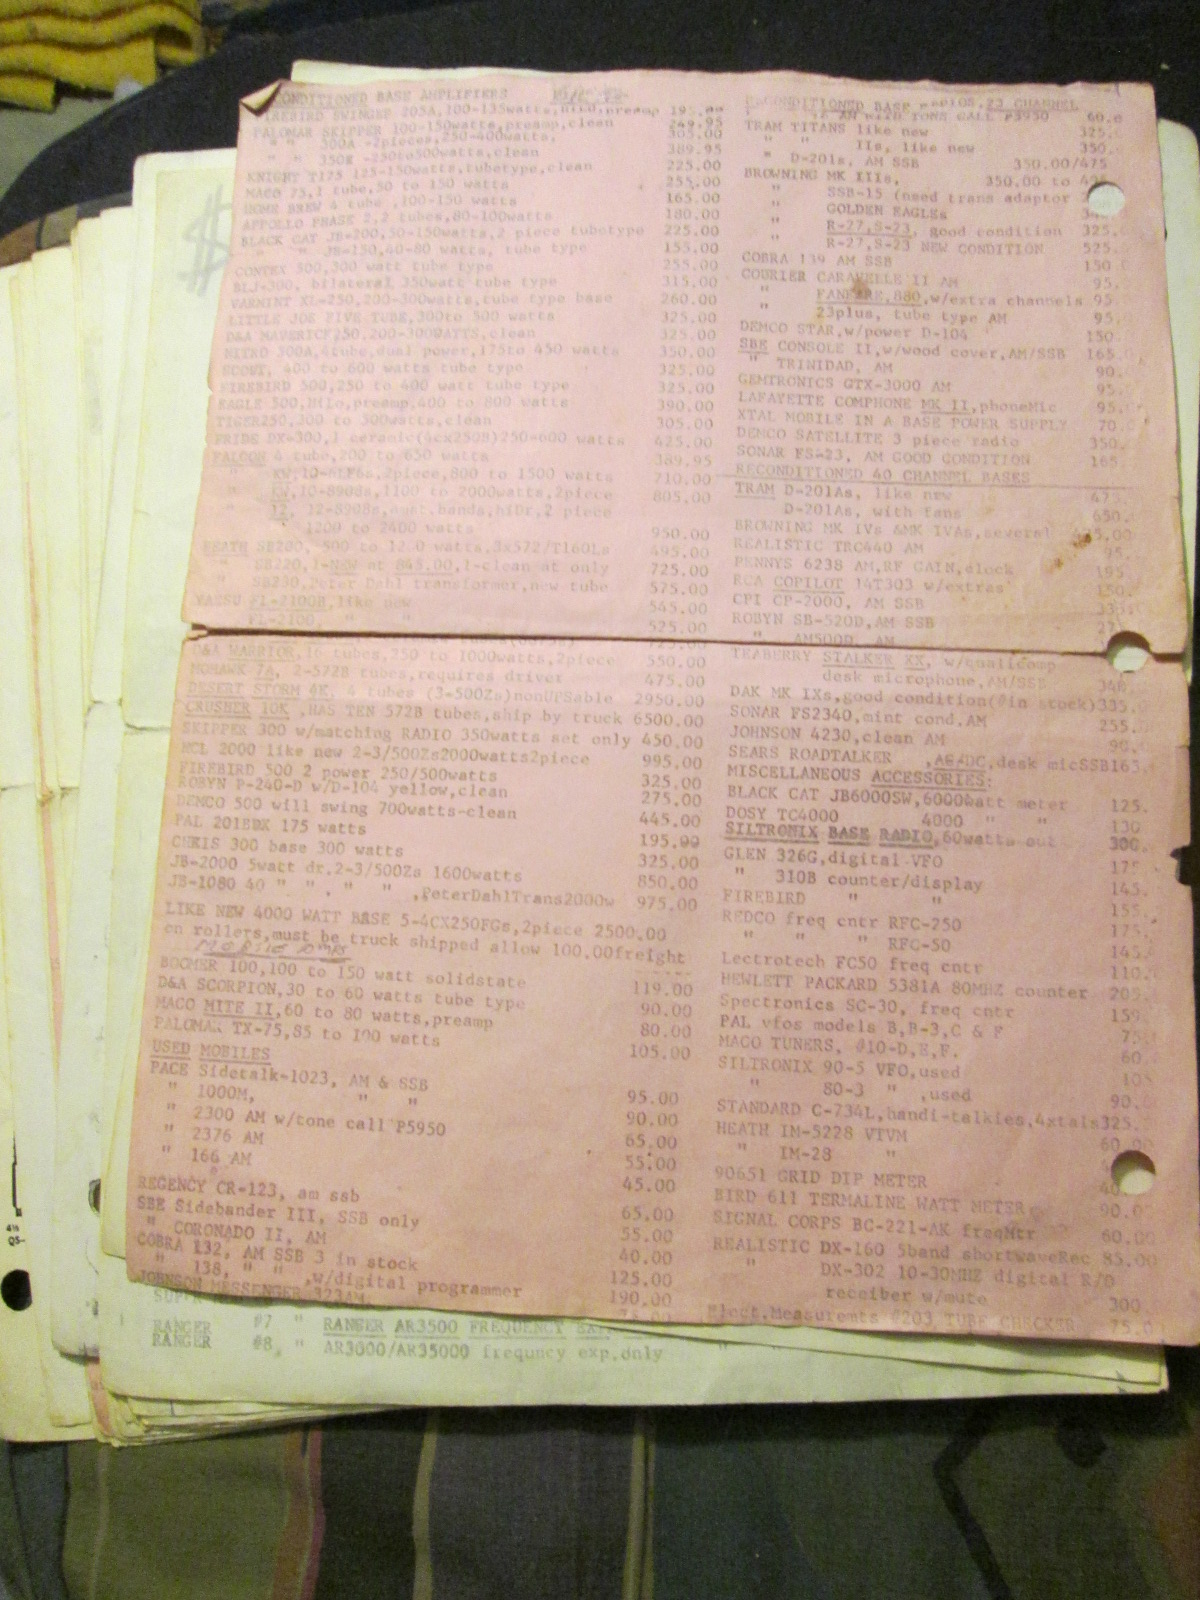 CONDITIONED BASE AMPLIFIERS
FIREBIRD SWINGER 205A,100-135watts,HiLo,preamp
PALOMAR SKIPPER 100-150watts,preamp,clean 249.95
" " 300A -2pieces,250-400watts, 305.00
" " 350Z -250to500watts,clean 389.95
KNIGHT T175 125-150watts,tubetype,clean 225.00
MACO 75,1 tube,50 to 150 watts 255.00
HOME BREW 4 tube ,100-150 watts 165.00
APPOLLO PHASE 2,2 tubes,80-100watts 180.00
BLACK CAT JB-200,50-150watts,2 piece tubetype 225.00
" " JB-150,40-80 watts, tube type 155.00
CONTEX 500,300 watt tube type 255.00
BLJ-300, bilateral 350watt tube type 315.00
VARMINT XL-250,200-300watts,tube type base 260.00
LITTLE JOE FIVE TUBE,300to 500 watts 325.00
D&A MAVERTCF250,200-300WATTS,clean 325.00
NITRO 300A,4tube,dual power,175to 450 watts 350.00
SCOUT, 400 to 600 watts tube type 325.00
FIREBIRD 500,250 to 400 watt tube type 325.00
EAGLE 500,HiLo,preamp,400 to 800 watts 390.00
TIGER250,300 to 500watts,clean 305.00
PRIDE DX-300,1 ceramic(4cx250B)250-600 watts 425.00
FALCON 4 tube,200 to 650 watts 389.95
" KW,10-6LF6s,2piece,800 to 1500 watts 710.00
" KW,10-8908s,1100 to 2000watts,2piece 805.00
" 12, 12-8908s,aust.bands,hiDr,2 piece
1200 to 2400 watts 950.00
HEATH SB200, 500 to 1200 watts,3x572/T160Ls 495.00
" SB220,1-NEW at 845.00,1-clean at only 725.00
" SB230,Peter Dahl transformer,new tube 575.00
YAESU FL-2100B,like new 545.00
FL-2100, " " 525.00
D&A WARRIOR,16 tubes,250 to 1000watts,2piece 550.00
MOHAWK 7A, 2-572B tubes,requires driver 475.00
DESERT STORM 4K, 4 tubes (3-500Zs)nonUPSable 2950.00
CRUSHER 10K ,HAS TEN 572B tubes,ship by truck 6500.00
SKIPPER 300 w/matching RADIO 350watts set only 450.00
MCL 2000 like new 2-3/500Zs2000watts2piece 995.00
FIREBIRD 500 2 power 250/500watts 325.00
ROBYN P-240-D w/D-104 yellow,clean 275.00
DEMCO 500 will swing 700watts-clean 445.00
PAL 201BDX 175 watts 195.00
CHRIS 300 base 300 watts 325.00
JB-2000 5watt dr.2-3/500Zs 1600watts 850.00
JB-1080 40 " " . " " ,PeterDahlTrans2000w 975.00
LIKE NEW 4000 WATT BASE 5-4CX250FGs,2piece 2500.00
on rollers,must be truck shipped allow 100.00freight
MOBILE AMPS
BOOMER 100,100 to 150 watt solidstate 119.00
D&A SCORPION,30 to 60 watts tube type 90.00
MACO MITE II,60 to 80 watts,preamp 80.00
PALOMAR TX-75,85 to 100 watts 105.00
USED MOBILES
PACE Sidetalk-1023, AM & SSB 95.00
" 1000M, " " 90.00
" 2300 AM w/tone call P5950 65.00
" 2376 AM 55.00
" 166 AM 45.00
REGENCY CR-123, am ssb 65.00
SBE Sidebander III, SSB only 55.00
" CORONADO II, AM 40.00
COBRA 132, AM SSB 3 in stock 125.00
" 138, " " ,w/digital programmer 190.00
JOHNSON MESSENGER 323AM,
RECONDITIONED BASE RADIOS,23 CHANNEL
TONE CALL P5950 60.0
TRAM TITANS like new 325.
" " IIs, like new 350.
" D-201s, AM SSB 350.00/475
BROWNING MK IIIs, 350.00 to
" SSB-15 (need trans adaptor
" GOLDEN EAGLEs
" R-27,S-23, good condition 325.
" R-27,S-23 NEW CONDITION 525.
COBRA 139 AM SSB 150.
COURIER CARAVELLE II AM 95.
" FANFARE,880,w/extra channels 95.
" 23plus, tube type AM 95.
DEMCO STAR,w/power D-104 150.
SBE CONSOLE II,w/wood cover,AM/SSB 165.
" TRINIDAD, AM 90.
GEMTRONICS GTX-3000 AM 95.
LAFAYETTE COMPHONE MK II,phoneMic 95.
XTAL MOBILE IN A BASE POWER SUPPLY 70.
DEMCO SATELLITE 3 piece radio 350.
SONAR FS-23, AM GOOD CONDITION 165.
RECONDITIONED 40 CHANNEL BASES
TRAM D-201As, like new 475.
D-201As, with fans 650.
BROWNING MK IVs &MK IVAs,several
REALISTIC TRC440 AM 95.
PENNYS 6238 AM,RF GAIN,clock 195
RCA COPILOT 14T303 w/extras 150.
CPI CP-2000, AM SSB
ROBYN SB-520D,AM SSB
" AM500D, AM
TEABERRY STALKER XX, w/qualicomp
desk microphone,AM/SSB 340.
DAK MK IXs,good condition(#in stock)335.
SONAR FS2340,mint cond.AM 255.
JOHNSON 4230,clean AM 90.
SEARS ROADTALKER ,AC/DC,desk micSSB165.
MISCELLANEOUS ACCESSORIES:
BLACK CAT JB6000SW,6000watt meter 125.
DOSY TC4000 4000 " " 130
SILTRONIX BASE RADIO,60watts out 300.
GLEN 326G,digital VFO 175
" 310B counter/display 145.
FIREBIRD " " 155.
REDCO freq cntr RFC-250 175.
" " " RFC-50 145.
Lectrotech FC50 freq cntr 110.
HEWLETT PACKARD 5381A 80MHZ counter 205.
Spectronics SC-30, freq cntr 159.
PAL vfos models B,B-3,C & F 75
MACO TUNERS, #10-D,E,F. 60.
SILTRONIX 90-5 VFO,used
" 80-3 " ,used 90.
STANDARD C-734L,handi-talkies,4xtals325.
HEATH IM-5228 VTVM 60.00
" IM-28 "
90651 GRID DIP METER 40.
BIRD 611 TERMALINE WATT METER 90.0
SIGNAL CORPS BC-221-AK freqMtr 60.00
REALISTIC DX-160 5band shortwaveRec 85.00
" DX-302 10-30MHZ digital R/D
receiber w/mute 300
Elect.Measuremts #203 TUBE CHECKER 75.0
RANGER #7 " RANGER AR3500 FREQUENCY
RANGER #8, " AR3000/AR35000 frequncy exp.only
$